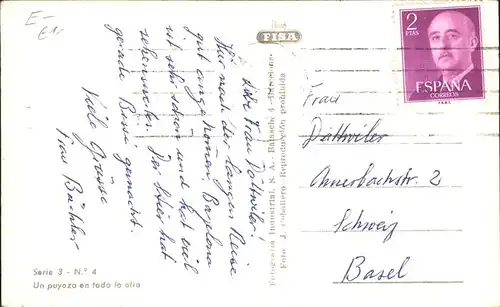 E-
E1-
Liebe Frau Dattwiler!
Sind nach der langen Reise
gut angekommen. Barzelona
ist sehr schön und hat viel
sehenswertes. Der Stier hat
gerade Busi gemacht.
Viele Grüsse
Frau Büchler
Serie 3 - N.º 4
Un payazo en todo lo alto
FISA
Fotografía Industrial, S. A. - Balmes, - Barcelona
Foto J. Caballero Reproducción prohibida
2
PTAS
ESPAÑA
CORREOS
Frau
Dattwiler
Amerbachstr. 2
Schweiz
Basel